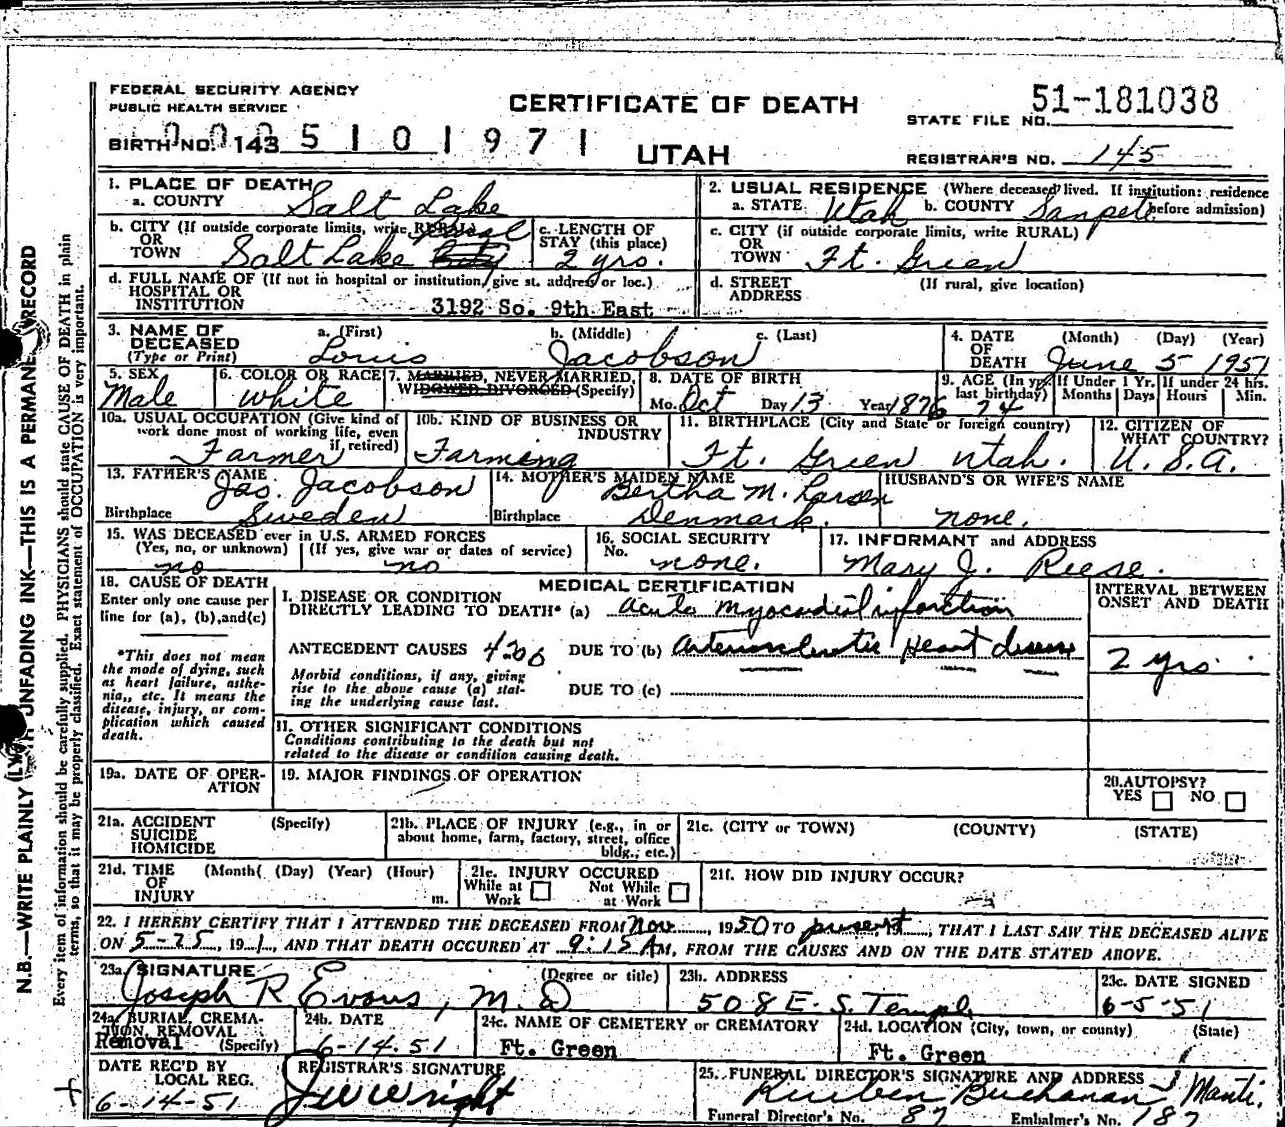 FEDERAL SECURITY AGENCY
PUBLIC HEALTH SERVICE
CERTIFICATE OF DEATH
51-181038
STATE FILE NO.
BIRTH NO. 143 5 1 0 1 9 7 1
UTAH
REGISTRAR'S NO. 145
1. PLACE OF DEATH
a. COUNTY Salt Lake
2. USUAL RESIDENCE (Where deceased lived. If institution: residence before admission)
a. STATE Utah b. COUNTY Sanpete
b. CITY (If outside corporate limits, write RURAL)
OR
TOWN Salt Lake
c. LENGTH OF
STAY (this place)
2 yrs.
c. CITY (if outside corporate limits, write RURAL)
OR
TOWN Ft. Green
d. FULL NAME OF (If not in hospital or institution, give st. address or loc.)
HOSPITAL OR
INSTITUTION 3192 So. 9th East
d. STREET (If rural, give location)
ADDRESS
3. NAME OF a. (First) b. (Middle) c. (Last)
DECEASED
(Type or Print) Louis Jacobson
4. DATE (Month) (Day) (Year)
OF
DEATH June 5 1951
5. SEX
Male
6. COLOR OR RACE
White
7. MARRIED, NEVER MARRIED,
WIDOWED, DIVORCED (Specify)
8. DATE OF BIRTH
Mo. Oct Day 13 Year 1876
9. AGE (In yrs. last birthday) 74
If Under 1 Yr. Months Days
If under 24 hrs. Hours Min.
10a. USUAL OCCUPATION (Give kind of
work done most of working life, even
if retired)
Farmer
10b. KIND OF BUSINESS OR
INDUSTRY
Farming
11. BIRTHPLACE (City and State or foreign country)
Ft. Green Utah.
12. CITIZEN OF
WHAT COUNTRY?
U. S. A.
13. FATHER'S NAME
Jas. Jacobson
Birthplace Sweden
14. MOTHER'S MAIDEN NAME
Bertha M. Larsen
Birthplace Denmark.
HUSBAND'S OR WIFE'S NAME
none.
15. WAS DECEASED ever in U.S. ARMED FORCES
(Yes, no, or unknown) (If yes, give war or dates of service)
no no
16. SOCIAL SECURITY
No. none.
17. INFORMANT and ADDRESS
Mary J. Reese.
18. CAUSE OF DEATH
Enter only one cause per
line for (a), (b), and (c)
*This does not mean
the mode of dying, such
as heart failure, asthe-
nia, etc. It means the
disease, injury, or com-
plication which caused
death.
MEDICAL CERTIFICATION
INTERVAL BETWEEN
ONSET AND DEATH
I. DISEASE OR CONDITION
DIRECTLY LEADING TO DEATH* (a) Acute myocardial infarction
ANTECEDENT CAUSES 4200 DUE TO (b) Arteriosclerotic Heart disease
2 yrs.
Morbid conditions, if any, giving
rise to the above cause (a) stat-
ing the underlying cause last.
DUE TO (c)
II. OTHER SIGNIFICANT CONDITIONS
Conditions contributing to the death but not
related to the disease or condition causing death.
19a. DATE OF OPER-
ATION
19. MAJOR FINDINGS OF OPERATION
20. AUTOPSY?
YES NO
21a. ACCIDENT (Specify)
SUICIDE
HOMICIDE
21b. PLACE OF INJURY (e.g., in or
about home, farm, factory, street, office
bldg., etc.)
21c. (CITY or TOWN) (COUNTY) (STATE)
21d. TIME (Month( (Day) (Year) (Hour)
OF
INJURY m.
21e. INJURY OCCURED
While at Work Not While at Work
21f. HOW DID INJURY OCCUR?
22. I HEREBY CERTIFY THAT I ATTENDED THE DECEASED FROM Nov., 1950 TO present, THAT I LAST SAW THE DECEASED ALIVE
ON 5-25, 1951, AND THAT DEATH OCCURED AT 9:15 AM, FROM THE CAUSES AND ON THE DATE STATED ABOVE.
23a. SIGNATURE (Degree or title)
Joseph R Evans, M.D
23b. ADDRESS
508 E. S. Temple
23c. DATE SIGNED
6-5-51
24a. BURIAL, CREMA-
TION, REMOVAL
Removal (Specify)
24b. DATE
6-14-51
24c. NAME OF CEMETERY or CREMATORY
Ft. Green
24d. LOCATION (City, town, or county) (State)
Ft. Green
DATE REC'D BY
LOCAL REG.
6-14-51
REGISTRAR'S SIGNATURE
J W Wright
25. FUNERAL DIRECTOR'S SIGNATURE AND ADDRESS
Rueben Buchanan Manti.
Funeral Director's No. 87 Embalmer's No. 187
N.B.—WRITE PLAINLY WITH UNFADING INK—THIS IS A PERMANENT RECORD
Every item of information should be carefully supplied. PHYSICIANS should state CAUSE OF DEATH in plain
terms, so that it may be properly classified. Exact statement of OCCUPATION is very important.